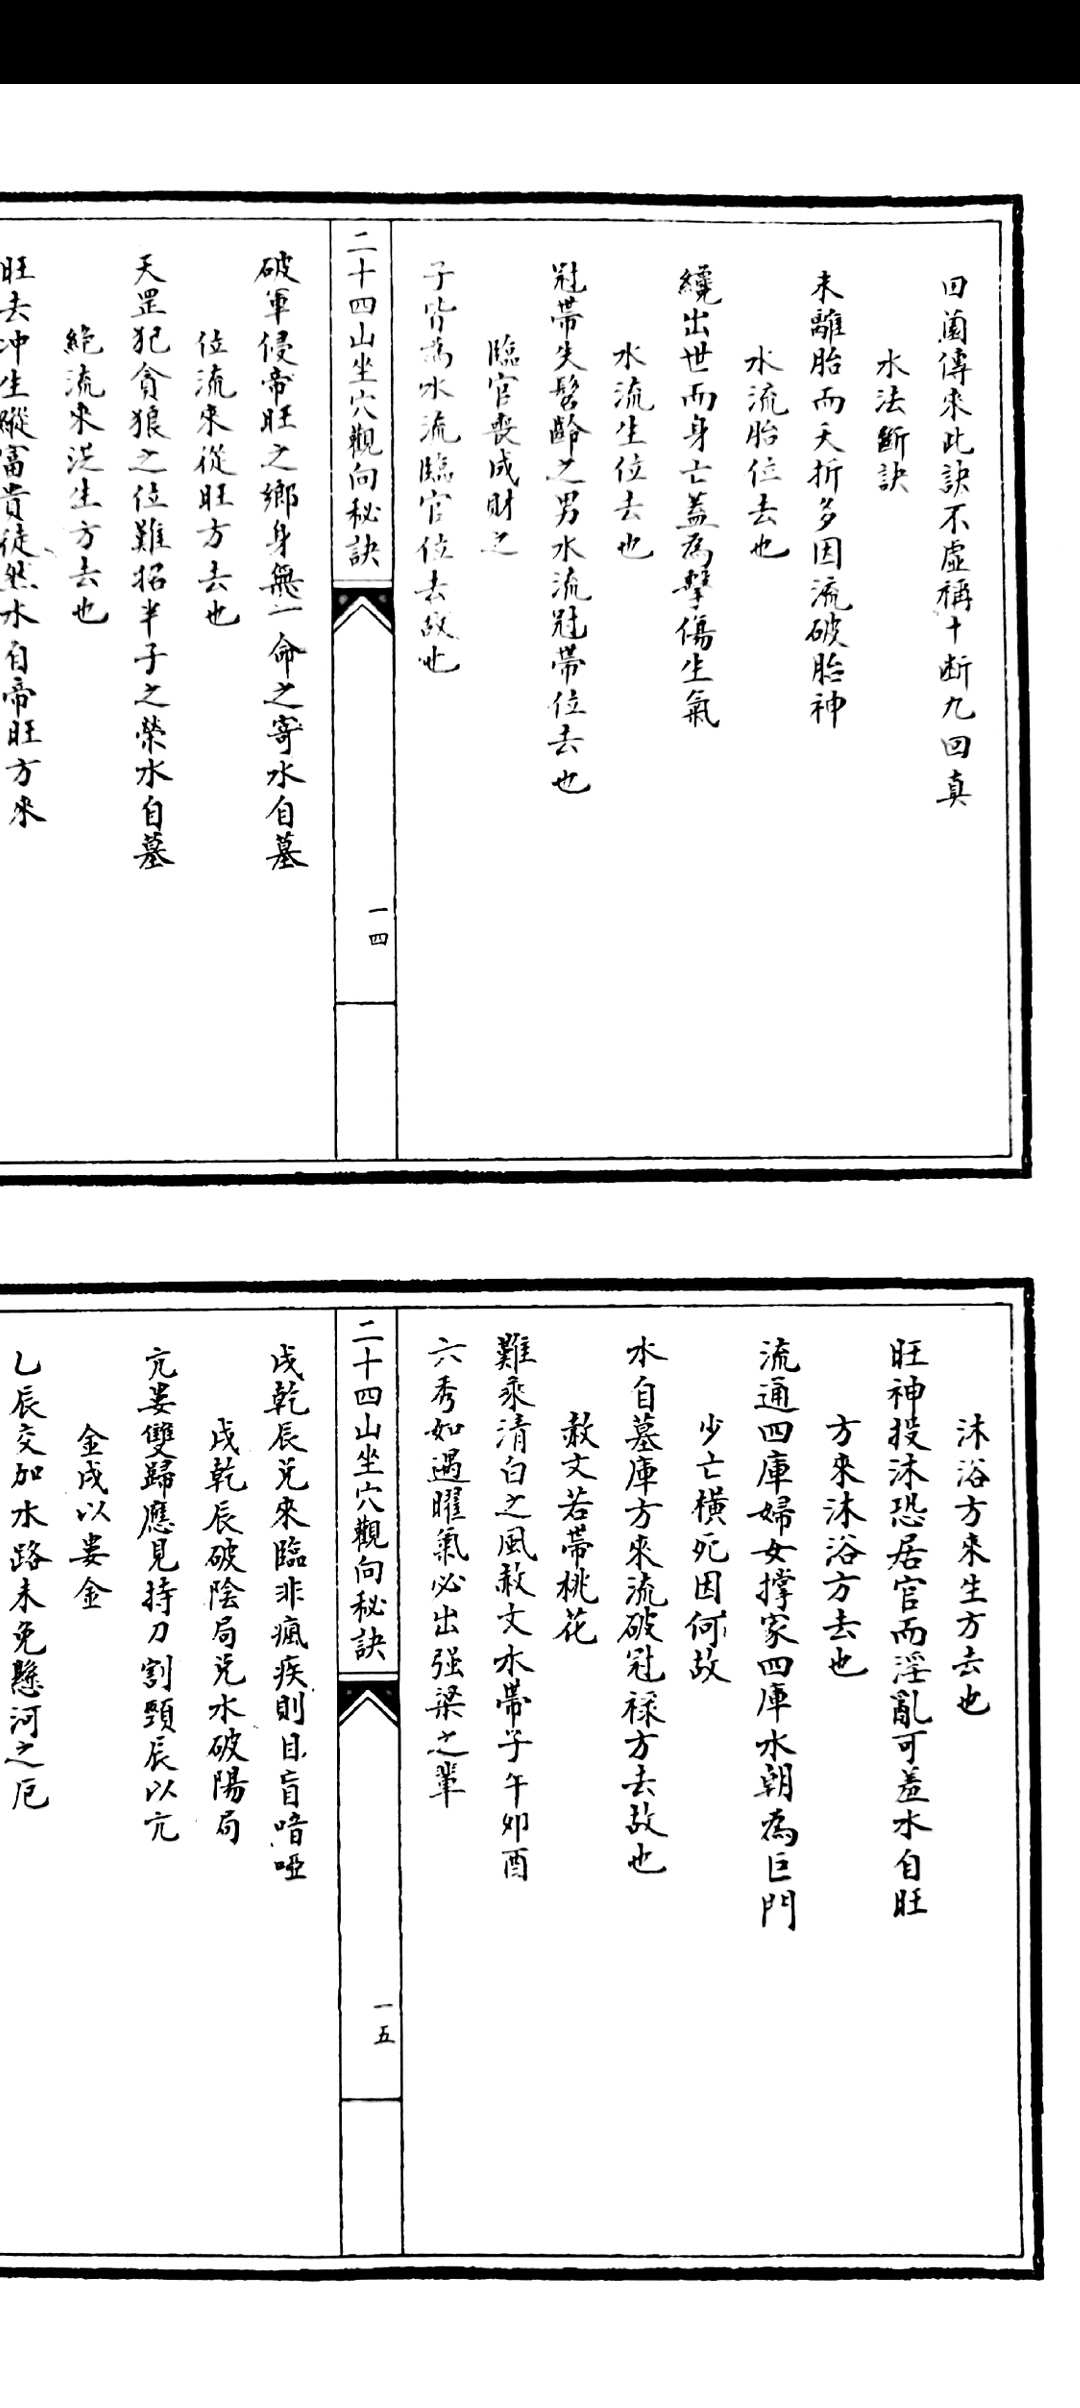 回蘭傳來此訣不虛稱十断九回真
水法斷訣
未離胎而夭折多因流破胎神
水流胎位去也
纔出世而身亡蓋為擊傷生氣
水流生位去也
冠帶失髫齡之男水流冠帶位去也
臨官喪成財之
子皆為水流臨官位去故也
二十四山坐穴觀向秘訣
一四
破軍侵帝旺之鄉身無一命之寄水自墓
位流來從旺方去也
天罡犯貪狼之位難招半子之榮水自墓
絕流來沖生方去也
旺去冲生縱富貴徒然水自帝旺方來
沐浴方來生方去也
旺神投沐恐居官而淫亂可羞水自旺
方來沐浴方去也
流通四庫婦女撑家四庫水朝為巨門
少亡橫死因何故
水自墓庫方來流破冠禄方去故也
赦文若帶桃花
難乘清白之風赦文水帶子午卯酉
六秀如遇曜氣必出强梁之輩
二十四山坐穴觀向秘訣
一五
戌乾辰兌來臨非瘋疾則目盲喑啞
戌乾辰破陰局兌水破陽局
亢婁雙歸應見持刀割頸辰以亢
金戌以婁金
乙辰交加水路未免懸河之厄